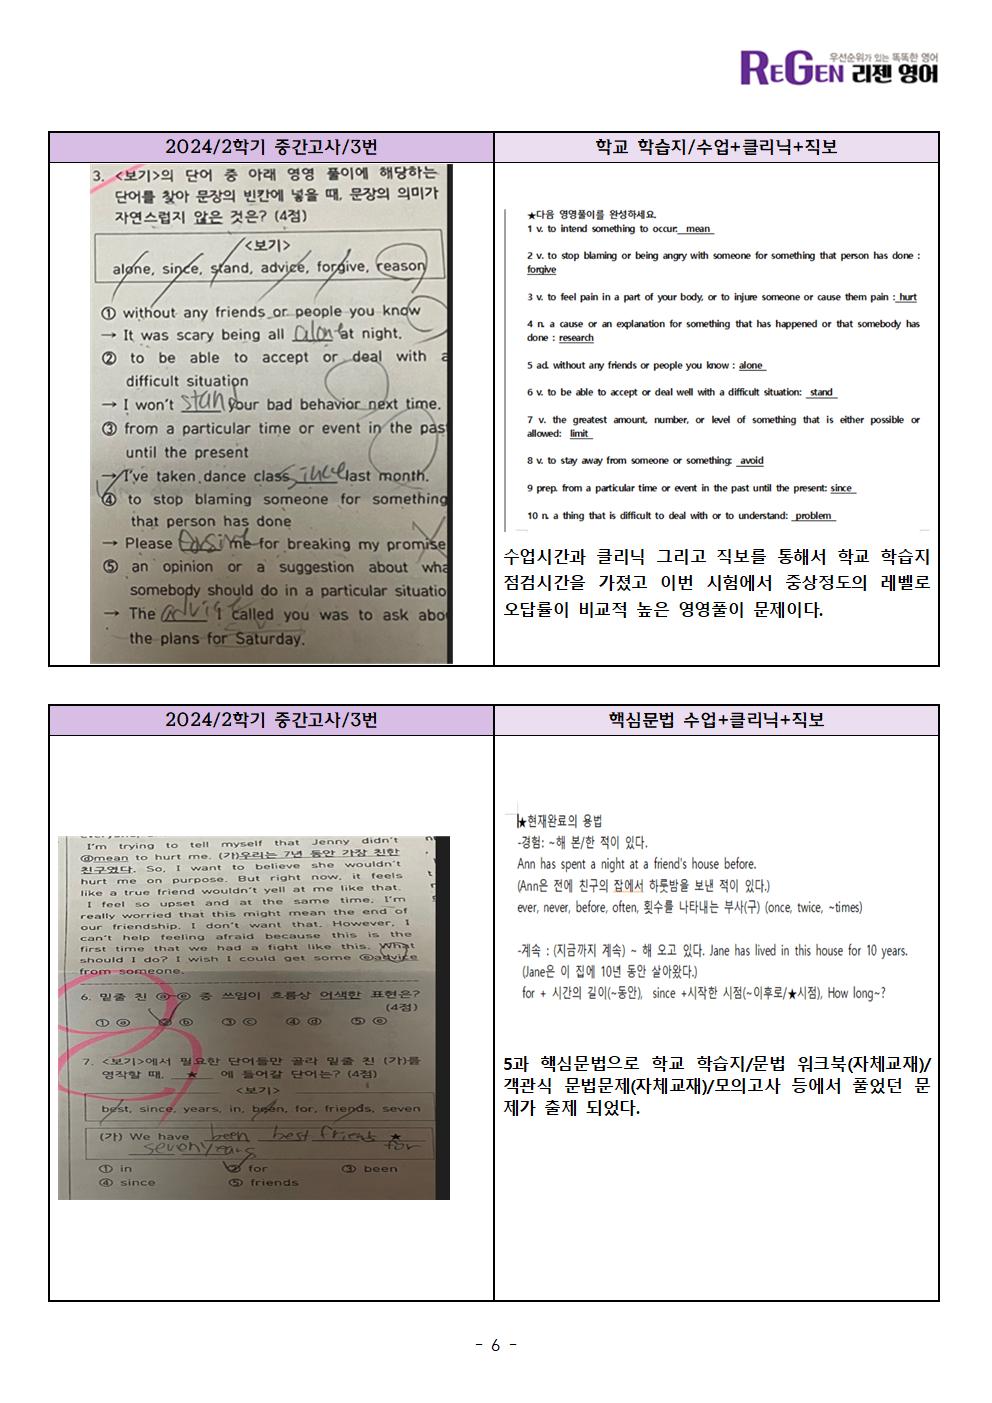 우선순위가 있는 똑똑한 영어
REGEN 리젠 영어
2024/2학기 중간고사/3번
3. <보기>의 단어 중 아래 영영 풀이에 해당하는
단어를 찾아 문장의 빈칸에 넣을 때, 문장의 의미가
자연스럽지 않은 것은? (4점)
<보기>
alone, since, stand, advice, forgive, reason
① without any friends or people you know
→ It was scary being all alone at night.
② to be able to accept or deal with a
difficult situation
→ I won't stand your bad behavior next time.
③ from a particular time or event in the pas
until the present
→ I've taken dance class since last month.
④ to stop blaming someone for something
that person has done
→ Please me for breaking my promise
⑤ an opinion or a suggestion about wha
somebody should do in a particular situatio
→ The advice I called you was to ask abo
the plans for Saturday.
학교 학습지/수업+클리닉+직보
★다음 영영풀이를 완성하세요.
1 v. to intend something to occur: mean
2 v. to stop blaming or being angry with someone for something that person has done :
forgive
3 v. to feel pain in a part of your body, or to injure someone or cause them pain : hurt
4 n. a cause or an explanation for something that has happened or that somebody has
done : research
5 ad. without any friends or people you know : alone
6 v. to be able to accept or deal well with a difficult situation: stand
7 v. the greatest amount, number, or level of something that is either possible or
allowed: limit
8 v. to stay away from someone or something: avoid
9 prep. from a particular time or event in the past until the present: since
10 n. a thing that is difficult to deal with or to understand: problem
수업시간과 클리닉 그리고 직보를 통해서 학교 학습지
점검시간을 가졌고 이번 시험에서 중상정도의 레벨로
오답률이 비교적 높은 영영풀이 문제이다.
2024/2학기 중간고사/3번
I'm trying to tell myself that Jenny didn't
ⓓmean to hurt me. (가)우리는 7년 동안 가장 친한
친구였다. So, I want to believe she wouldn't
hurt me on purpose. But right now, it feels
like a true friend wouldn't yell at me like that.
I feel so upset and at the same time, I'm
really worried that this might mean the end of
our friendship. I don't want that. However, I
can't help feeling afraid because this is the
first time that we had a fight like this. What
should I do? I wish I could get some ⓔadvice
from someone.
6. 밑줄 친 ⓐ~ⓔ 중 쓰임이 흐름상 어색한 표현은?
(4점)
① ⓐ ② ⓑ ③ ⓒ ④ ⓓ ⑤ ⓔ
7. <보기>에서 필요한 단어들만 골라 밑줄 친 (가)를
영작할 때, ★ 에 들어갈 단어는? (4점)
<보기>
best, since, years, in, been, for, friends, seven
(가) We have been best friends ★
seven years for
① in ② for ③ been
④ since ⑤ friends
핵심문법 수업+클리닉+직보
★현재완료의 용법
-경험: ~해 본/한 적이 있다.
Ann has spent a night at a friend's house before.
(Ann은 전에 친구의 집에서 하룻밤을 보낸 적이 있다.)
ever, never, before, often, 횟수를 나타내는 부사(구) (once, twice, ~times)
-계속 : (지금까지 계속) ~ 해 오고 있다. Jane has lived in this house for 10 years.
(Jane은 이 집에 10년 동안 살아왔다.)
for + 시간의 길이(~동안), since +시작한 시점(~이후로/★시점), How long~?
5과 핵심문법으로 학교 학습지/문법 워크북(자체교재)/
객관식 문법문제(자체교재)/모의고사 등에서 풀었던 문
제가 출제 되었다.
- 6 -